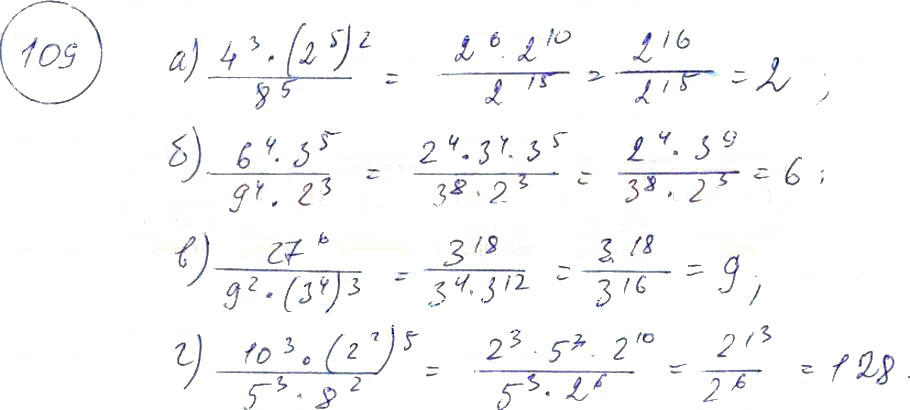 109
а) 4³ · (2⁵)² / 8⁵ = 2⁶ · 2¹⁰ / 2¹⁵ = 2¹⁶ / 2¹⁵ = 2 ;
б) 6⁴ · 3⁵ / 9⁴ · 2³ = 2⁴ · 3⁴ · 3⁵ / 3⁸ · 2³ = 2⁴ · 3⁹ / 3⁸ · 2³ = 6 ;
в) 27⁶ / 9² · (3⁴)³ = 3¹⁸ / 3⁴ · 3¹² = 3¹⁸ / 3¹⁶ = 9 ;
г) 10³ · (2²)⁵ / 5³ · 8² = 2³ · 5³ · 2¹⁰ / 5³ · 2⁶ = 2¹³ / 2⁶ = 128 .